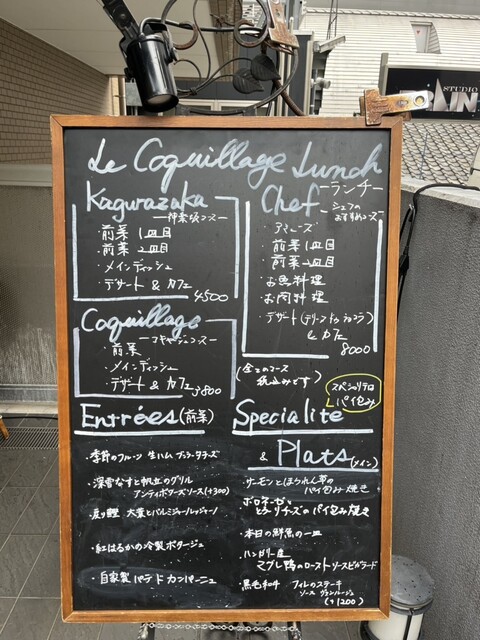 Le Coquillage Lunch
ーランチー
Kagurazaka
ー神楽坂コースー
前菜1皿目
前菜2皿目
・メインディッシュ
・デザート & カフェ
4500
Chef
ーシェフの
おすすめコースー
・アミューズ
・前菜1皿目
・前菜2皿目
・お魚料理
・お肉料理
・デザート(テリーヌ ドゥ ショコラ)
& カフェ
8000
Coquillage
ーコキヤージュコースー
前菜
・メインディッシュ
・デザート & カフェ
3800
(全てのコース
税込みです)
スペシャリテは
パイ包み
Entrées(前菜)
・季節のフルーツ 生ハム ブッラータチーズ
・深雪なすと帆立のグリル
アンティボワーズソース(+300)
・戻り鰹 大葉とパルミジャーノレッジャーノ
・紅はるかの冷製ポタージュ
・自家製 パテ ド カンパーニュ
Specialité
& Plats(メイン)
・サーモンとほうれん草の
パイ包み焼き
・ボロネーゼと
チーズのパイ包み焼き
・本日の鮮魚の一皿
・ハンガリー産
マグレ鴨のロースト ソースビガラード
・黒毛和牛 フィレのステーキ
ソース ヴァンルージュ
(+1200)
STUDIO